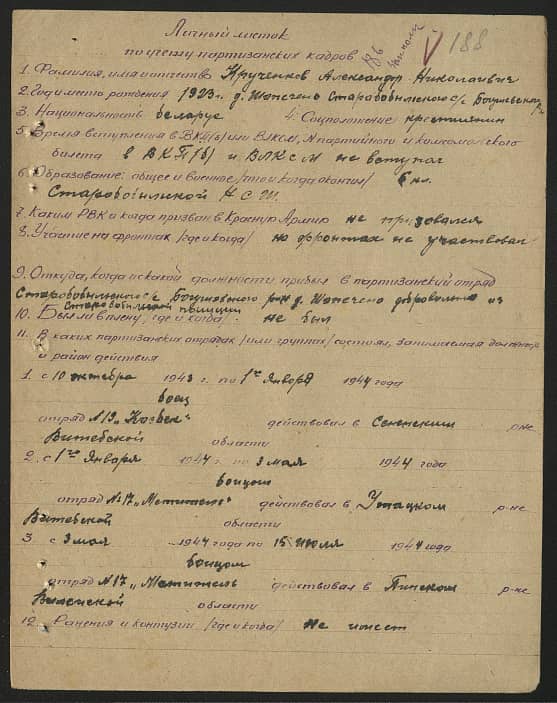 Личный листок
по учету партизанских кадров
186
V 188
1. Фамилия, имя и отчество Крученков Александр Николаевич
2. Год и место рождения 1923 г. д. Шепечено Старобобыльского с/с Богушевского
3. Национальность беларус 4. Соцположение крестьянин
5. Время вступления в ВКП(б) или ВЛКСМ, N партийного и комсомольского
билета в ВКП(б) и ВЛКСМ не вступал
6. Образование: общее и военное /что и когда окончил/ 6 кл.
Старобобыльской Н С Ш.
7. Каким РВК и когда призван в Красную Армию не призовался
8. Участие на фронтах /где и когда/ на фронтах не участвовал
9. Откуда, когда и с какой должности прибыл в партизанский отряд
Старобобыльского с/с Богушевского р-на д. Шепечено добровольно из
Старобобыльской
10. Был ли в плену, где и когда/ не был
11. В каких партизанских отрядах /или группах/ состоял, занимаемая должность
и район действия
1. с 10 октября 1943 г. по 1го Января 1944 года
боец
отряд №19 действовал в Сененским р-не
Витебской области
2. с 1го Января 1944 г. по 3 мая 1944 года
бойцом
отряд №17 „Мститель" действовал в Ушацком р-не
Витебской области
3. с 3 мая 1944 года по 15 июля 1944 года
бойцом
отряд №17 „Мститель действовал в р-не
области
12. Ранения и контузии /где и когда/ Не имеет